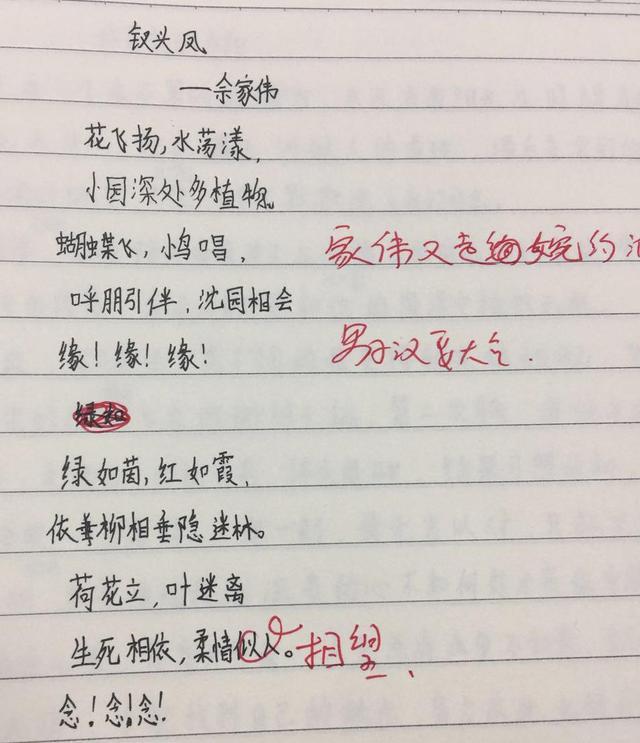 钗头凤
——余家伟
花飞扬,水荡漾,
小园深处多植物。
蝴蝶飞,小鸟唱,
家伟又走婉约派
呼朋引伴,沈园相会
缘!缘!缘!
男子汉要大气.
绿如茵,红如霞,
依垂柳相垂隐迷林。
荷花立,叶迷离
生死相依,柔情似人。相望.
念!念!念!